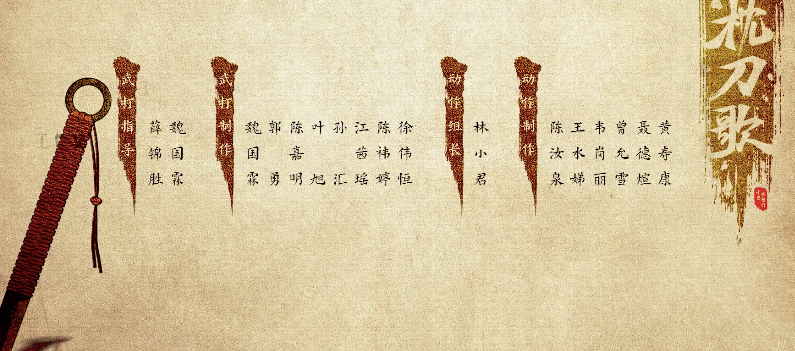 枕刀歌
动作制作
黄寿康
聂德煊
曾允雪
韦岗丽
王水娣
陈汝泉
动作组长
林小君
武打制作
徐伟恒
陈祎婷
江茜瑶
孙汇
叶旭
陈嘉明
郭勇
魏国霖
武打指导
魏国霖
薛锦胜